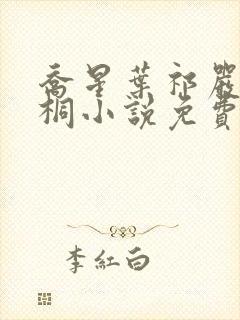 喬星葉祁嚴
桐小說免費
李紅白